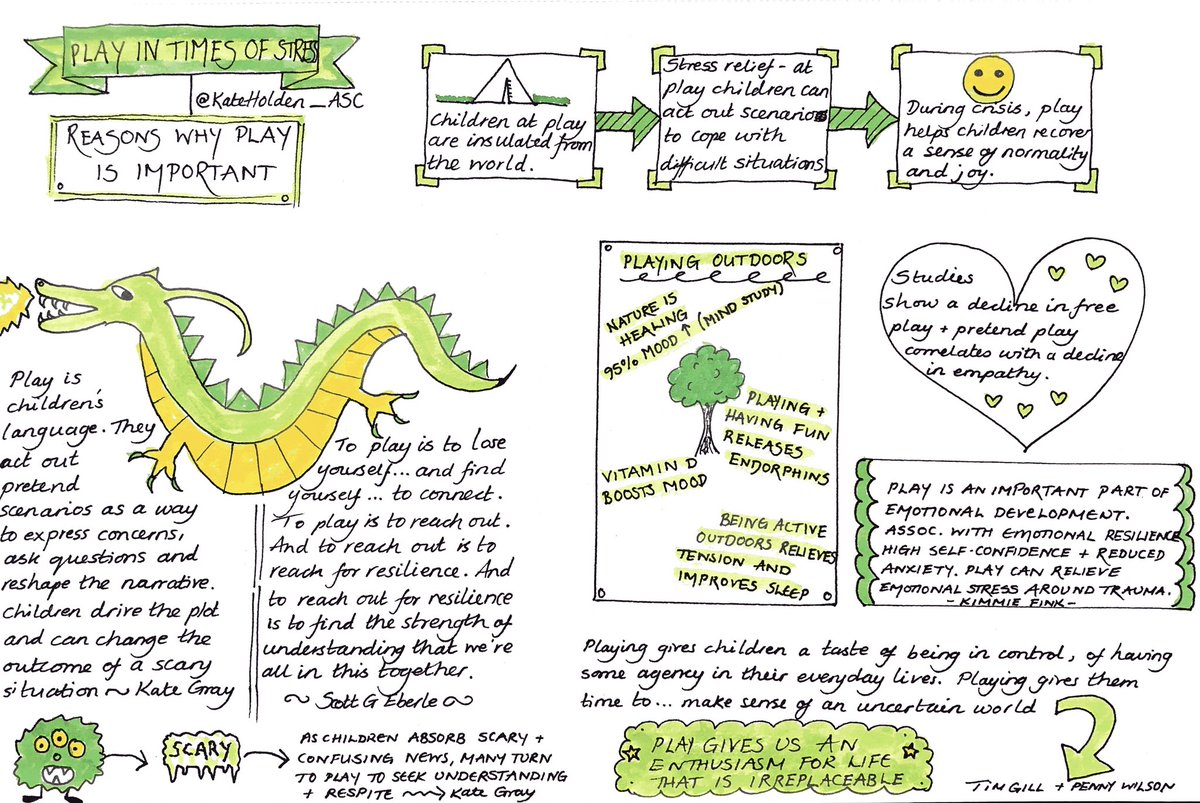 PLAY IN TIMES OF STRESS
@KateHolden_ASC
REASONS WHY PLAY
IS IMPORTANT
Children at play
are insulated from
the world.
Stress relief - at
play children can
act out scenarios
to cope with
difficult situations
During crisis, play
helps children recover
a sense of normality
and joy.
Play is
children's
language. They
act out
pretend
scenarios as a way
to express concerns,
ask questions and
reshape the narrative.
Children drive the plot
and can change the
outcome of a scary
situation ~ Kate Gray
To play is to lose
yourself... and find
yoursey... to connect.
To play is to reach out.
And to reach out is to
reach for resilience. And
to reach out for resilience
is to find the strength of
understanding that we're
all in this together.
~ Scott G Eberle ~
PLAYING OUTDOORS
NATURE IS
HEALING
95% MOOD ↑ (MIND STUDY)
PLAYING +
HAVING FUN
RELEASES
ENDORPHINS
VITAMIN D
BOOSTS MOOD
BEING ACTIVE
OUTDOORS RELIEVES
TENSION AND
IMPROVES SLEEP
Studies
show a decline in free
play + pretend play
correlates with a decline
in empathy.
PLAY IS AN IMPORTANT PART OF
EMOTIONAL DEVELOPMENT.
ASSOC. WITH EMOTIONAL RESILIENCE
HIGH SELF-CONFIDENCE + REDUCED
ANXIETY. PLAY CAN RELIEVE
EMOTIONAL STRESS AROUND TRAUMA.
- KIMMIE FINK -
Playing gives children a taste of being in control, of having
some agency in their everyday lives. Playing gives them
time to... make sense of an uncertain world
TIM GILL + PENNY WILSON
PLAY GIVES US AN
ENTHUSIASM FOR LIFE
THAT IS IRREPLACEABLE
SCARY
AS CHILDREN ABSORB SCARY +
CONFUSING NEWS, MANY TURN
TO PLAY TO SEEK UNDERSTANDING
+ RESPITE ~~> Kate Gray